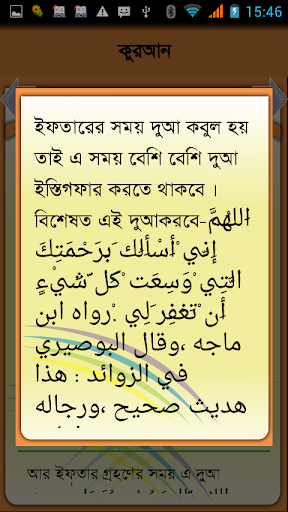 15:46
কুরআন
ইফতারের সময় দুআ কবুল হয়
তাই এ সময় বেশি বেশি দুআ
ইস্তিগফার করতে থাকবে ।
বিশেষত এই দুআকরবে- اللهُمَّ
إِني ْأسْألك َبرَحْمَتِكَ
التِي ْوَسِعَت ْكل ّشيْءٍ
أن ْتغفِر َلِي .ْرواه ابن
ماجه ،وقال البوصيري
في الزوائد : هذا
هديث صحيح ،ورجاله
আর ইফতার গ্রহণের সময় এ দুআ